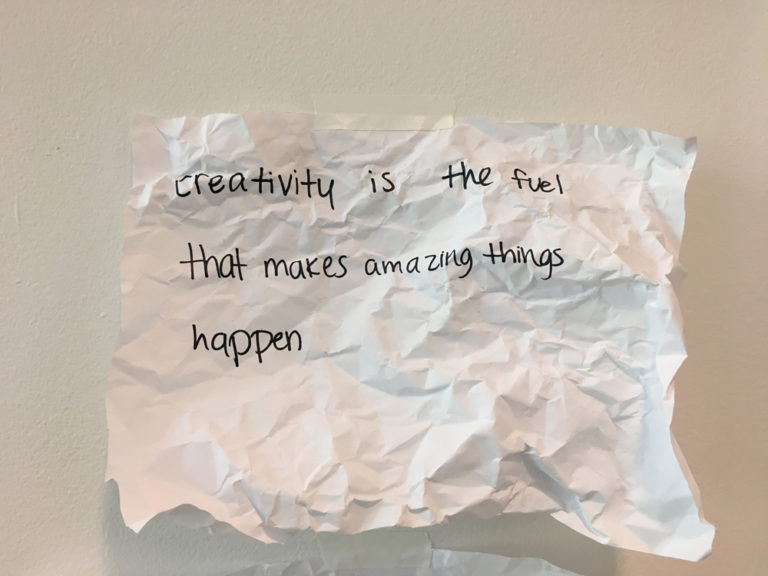 creativity is the fuel
that makes amazing things
happen